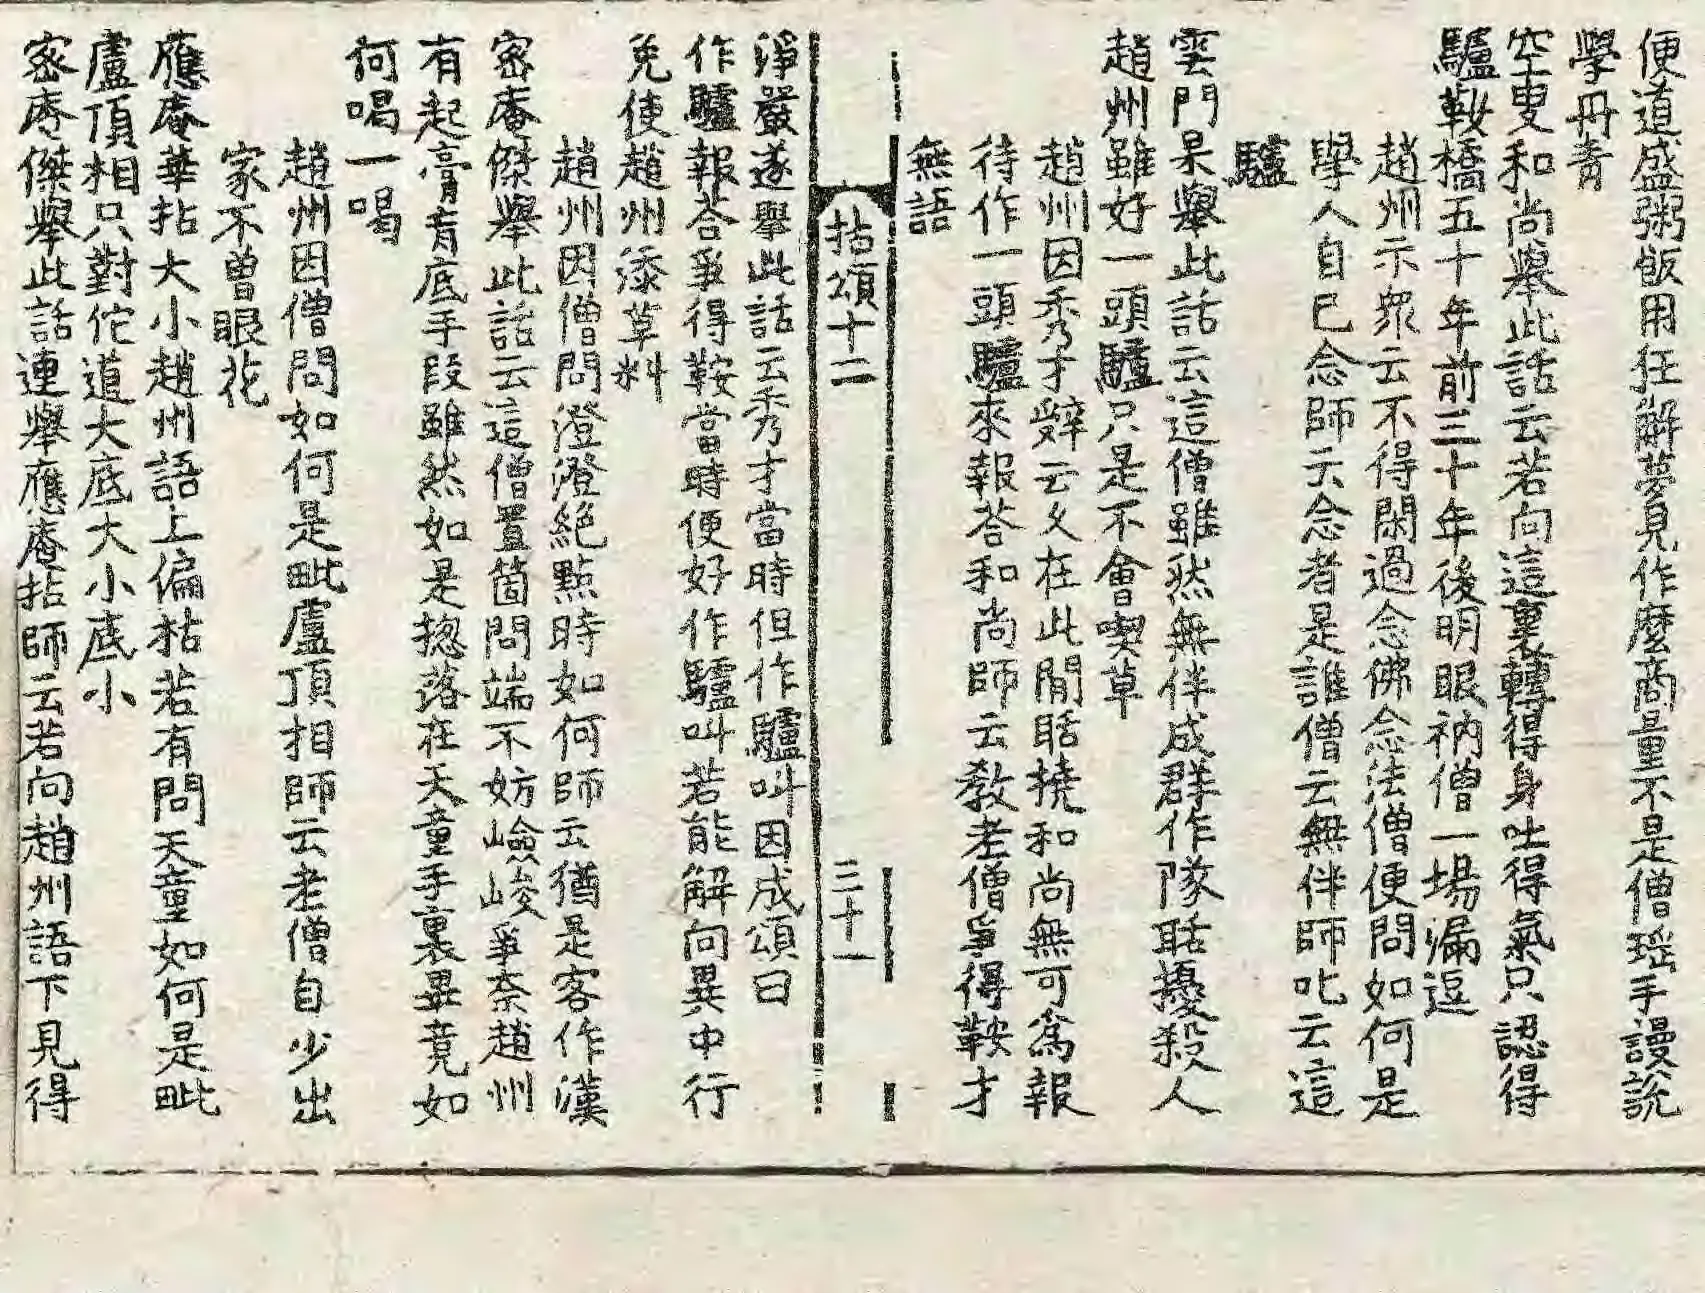 便道盛粥飯用狂解夢見作麼商量不是僧瑶手謾說
學丹青
空叟和尚舉此話云若向這裏轉得身吐得氣只認得
驢鞍橋五十年前三十年後明眼衲僧一場漏逗
趙州示衆云不得閑過念佛念法僧便問如何是
學人自己念師云念者是誰僧云無伴師叱云這
驢
雲門杲舉此話云這僧雖然無伴成群作隊聒擾殺人
趙州雖好一頭驢只是不會喫草
趙州因秀才辭云久在此閒聒撓和尚無可爲報
待作一頭驢來報荅和尚師云教老僧爭得鞍才
無語
拈頌十二
三十一
淨嚴遂舉此話云秀才當時但作驢叫因成頌曰
作驢報荅爭得鞍當時便好作驢叫若能解向異中行
免使趙州添草料
趙州因僧問澄澄絶點時如何師云猶是客作漢
密庵傑舉此話云這僧置箇問端不妨嶮峻爭柰趙州
有起膏肓底手段雖然如是揔落在天童手裏畢竟如
何喝一喝
趙州因僧問如何是毗盧頂相師云老僧自少出
家不曾眼花
應庵華拈大小趙州語上偏枯若有問天童如何是毗
盧頂相只對佗道大底大小底小
密庵傑舉此話連舉應庵拈師云若向趙州語下見得